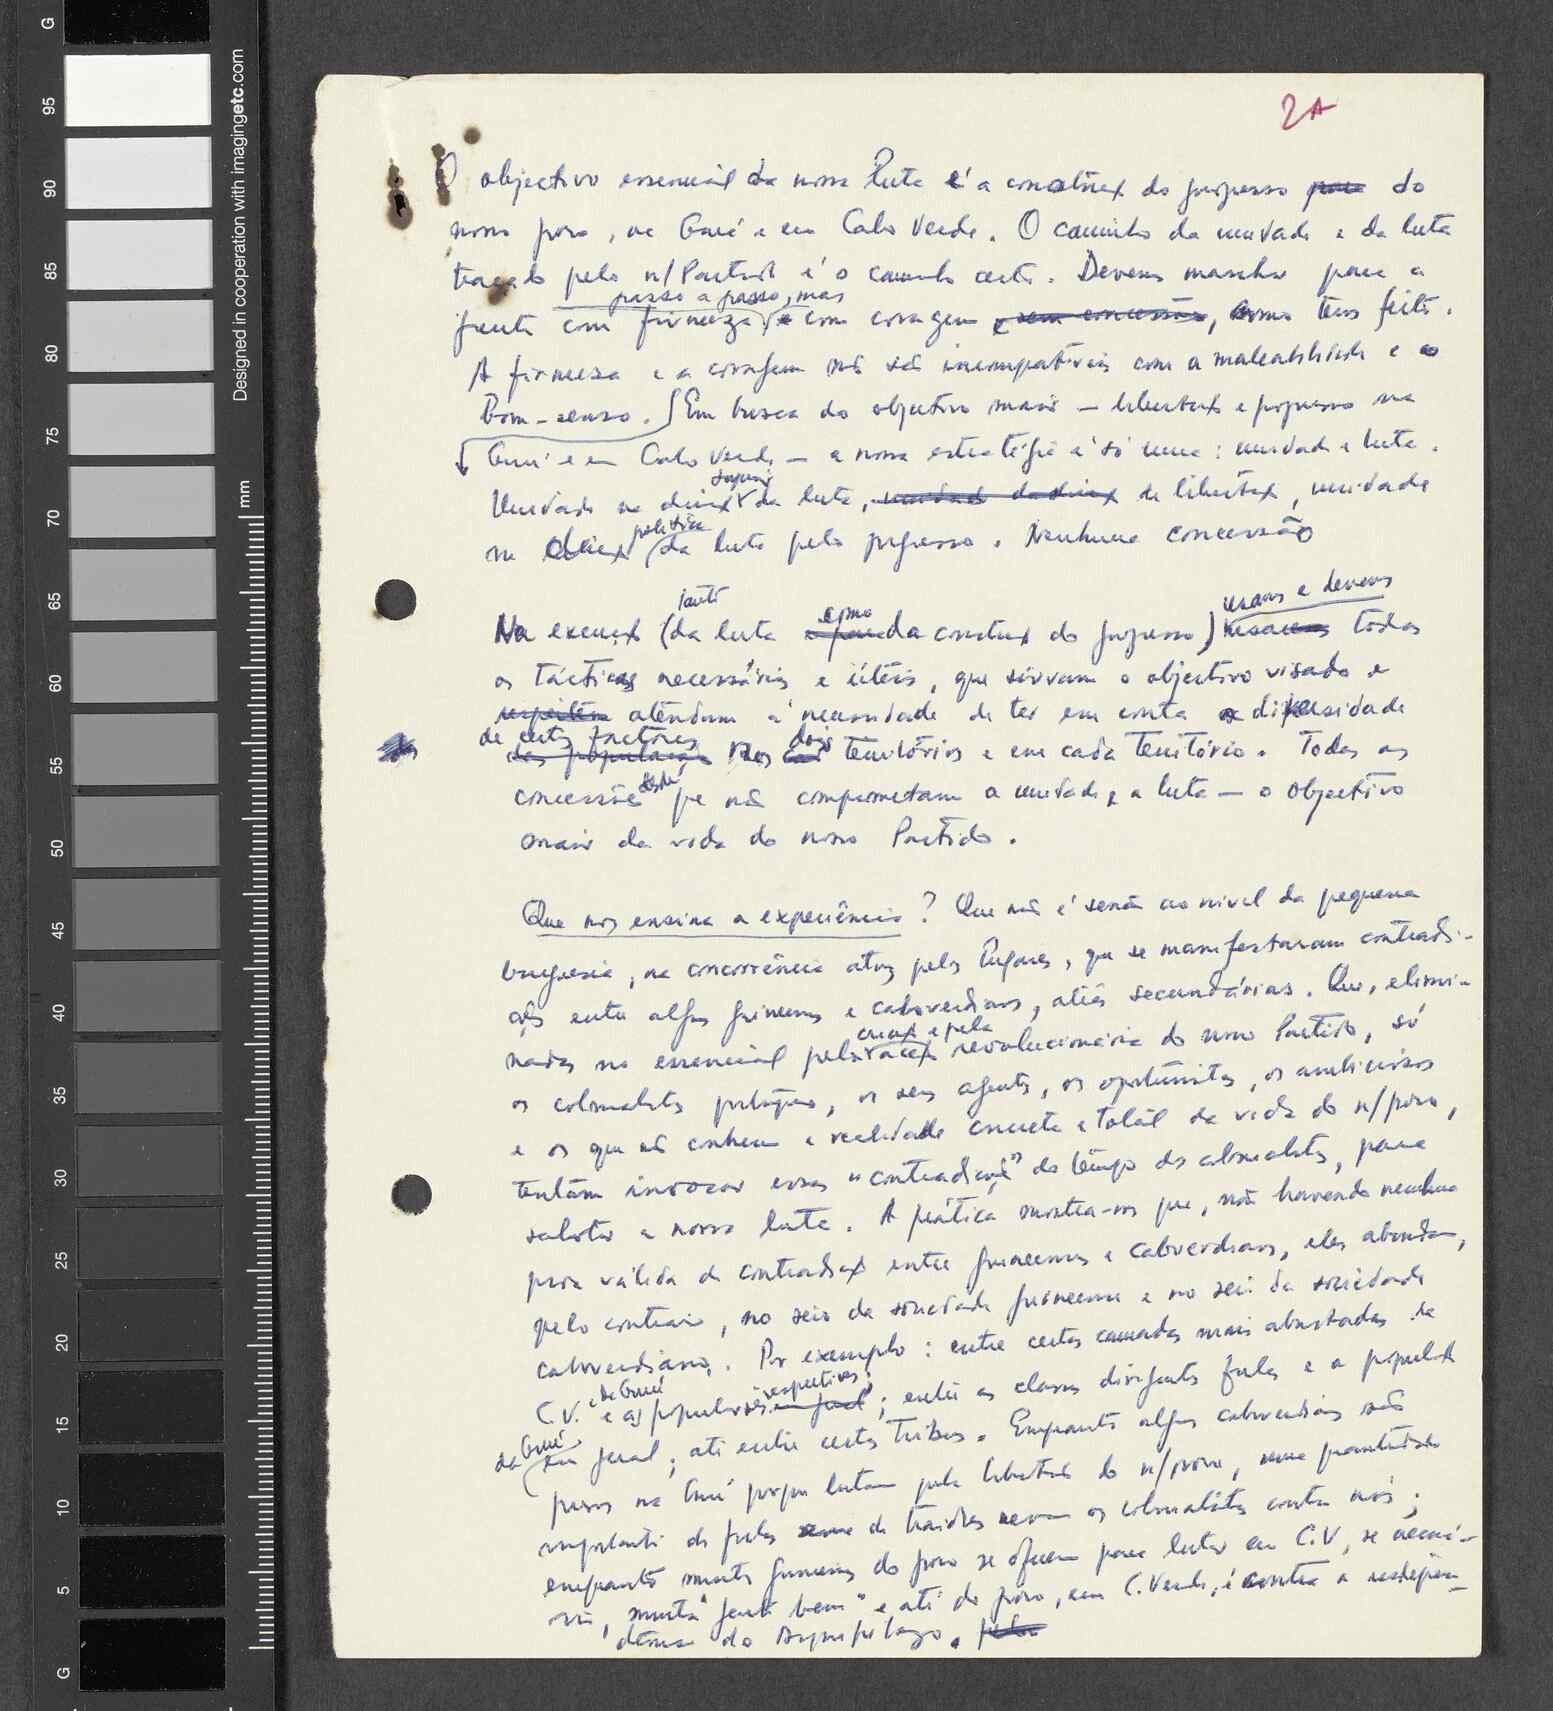 2A
O objectivo essencial da nossa luta é a construç do progresso para do
nosso povo, na Guiné e em Cabo Verde. O caminho da unidade e da luta
traçado pelo n/Partido é o caminho certo. Devemos marchar para a
passo a passo, mas
frente com firmeza e com coragem e sem concessões, como temos feito.
A firmeza e a coragem não são incompatíveis com a maleabilidade e o
bom-senso. Em busca do objectivo maior — libertaç e progresso na
Guiné e em Cabo Verde — a nossa estratégia é só uma: unidade e luta.
superior
Unidade na direcç da luta, unidade da direcç de libertaç, unidade
política
na direcç da luta pelo progresso. Nenhuma concessão
tanto como usamos e devemos
Na execuç (da luta e para da construç do progresso) usaremos todas
as tácticas necessárias e úteis, que sirvam o objectivo visado e
respeitem atendam à necessidade de ter em conta a diversidade
de certos factores dois
das populações nos territórios e em cada território. Todas as
desde
concessões que não comprometam a unidade e a luta — o objectivo
maior da vida do nosso Partido.
Que nos ensina a experiência? Que não é senão ao nível da pequena
burguesia, na concorrência atrás pelos lugares, que se manifestaram contradi-
ções entre alguns guineenses e caboverdianos, aliás secundárias. Que, elimi-
e pela
nadas no essencial pela acç revolucionária do nosso Partido, só
os colonialistas portugueses, os seus agentes, os oportunistas, os ambiciosos
e os que não conhecem a realidade concreta e total da vida do n/povo,
tentam invocar essas "contradições" do tempo dos colonialistas, para
sabotar a nossa luta. A prática mostra-nos que, não havendo nenhuma
prova válida de contradiç entre guineenses e caboverdianos, eles abundam,
pelo contrário, no seio da sociedade guineense e no seio da sociedade
caboverdiana. Por exemplo: entre certas camadas mais abastadas de
e da Guiné respectivas
C.V. e as populações em geral; entre as classes dirigentes fulas e a populaç
da Guiné
em geral; até entre certas tribos. Enquanto alguns caboverdianos são
presos na Guiné porque lutam pela libertaç do n/povo, uma quantidade
importante de fulas de traidores servem os colonialistas contra nós;
enquanto muitos guineenses do povo se oferecem para lutar em C.V, se necessá-
rio, muita "gente bem" e até do povo, em C. Verde, é contra a indepen-
dência do Arquipélago. pelo
Designed in cooperation with imagingetc.com
mm
G
95
90
85
80
75
70
65
60
55
50
45
40
35
30
25
20
15
10
5
G